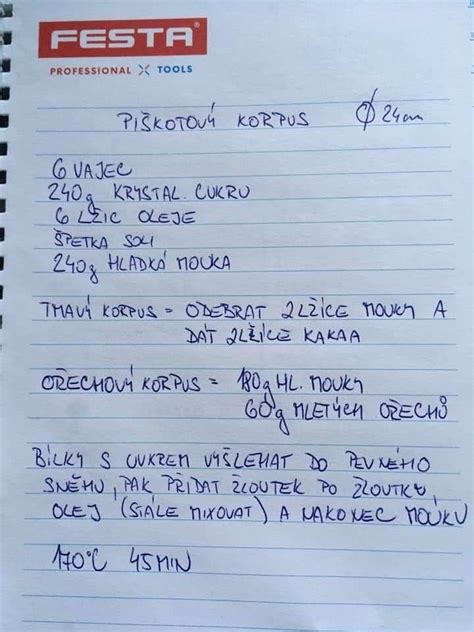 FESTA
PROFESSIONAL TOOLS
PIŠKOTOVÝ KORPUS Ø 24cm
6 VAJEC
240g KRYSTAL. CUKRU
6 LŽIC OLEJE
ŠPETKA SOLI
240g HLADKÁ MOUKA
TMAVÝ KORPUS = ODEBRAT 2 LŽÍCE MOUKY A
DÁT 2 LŽÍCE KAKAA
OŘECHOVÝ KORPUS = 180g HL. MOUKY
60g MLETÝCH OŘECHŮ
BÍLKY S CUKREM VYŠLEHAT DO PEVNÉHO
SNĚHU, PAK PŘIDAT ŽLOUTEK PO ŽLOUTKU,
OLEJ (STÁLE MIXOVAT) A NAKONEC MOUKU
170°C 45 MIN